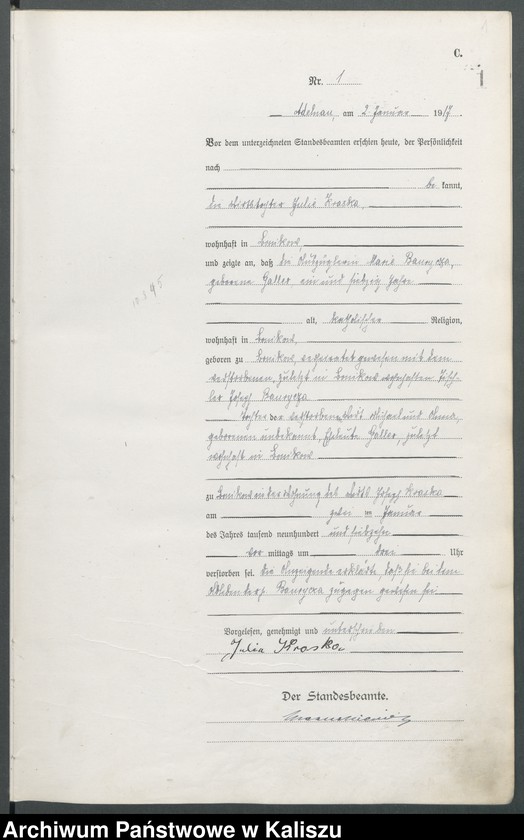 C.
1
Nr. 1
Adelnau, am 2 Januar 1917.
Vor dem unterzeichneten Standesbeamten erschien heute, der Persönlichkeit
nach
be kannt,
die Wirtstochter Julie Kraska,
wohnhaft in Bonikow,
und zeigte an, daß die Auszüglerin Marie
geborene Galler ein und siebzig Jahre
alt, katholischer Religion,
wohnhaft in Bonikow,
geboren zu Bonikow, verheiratet gewesen mit dem
verstorbenen, zuletzt in Bonikow wohnhaften
Josef
Tochter der verstorbenen Michael und
geborenen unbekannt, Eheleute Galler, zuletzt
wohnhaft in Bonikow
zu Bonikow in der Wohnung des Wirts Josef Kraska
am zwei ten Januar
des Jahres tausend neunhundert und siebzehn
vor mittags um drei Uhr
verstorben sei. Die Anzeigende erklärte, daß sie bei dem
Ableben der zugegen gewesen sei.
Vorgelesen, genehmigt und unterschrieben
Julia Kraska
Der Standesbeamte.
Archiwum Państwowe w Kaliszu